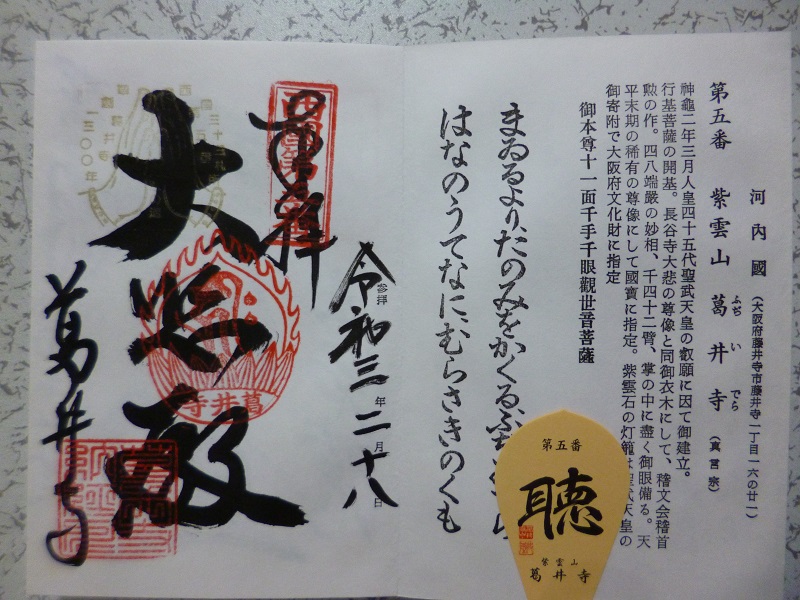 河內國（大阪府藤井寺市藤井寺一丁目一六の廿一）
第五番 紫雲山 葛井寺（真言宗）
ふぢ い でら
神龜二年三月人皇四十五代聖武天皇の叡願に因て御建立。
行基菩薩の開基。長谷寺大悲の尊像と同御衣木にして、稽文会稽首
勲の作。四八端嚴の妙相、千四十二臂、掌の中に盡く御眼備る。天
平末期の稀有の尊像にして國寶に指定。紫雲石の灯籠は聖武天皇の
御寄附で大阪府文化財に指定
御本尊十一面千手千眼觀世音菩薩
まゐるより、たのみをかくるふぢ
はなのうてなに、むらさきのくも
第五番
聴
紫雲山
葛井寺
参拝
令和三年二月十八日
奉拝
大悲殿
葛井寺
葛井寺
一三〇〇年